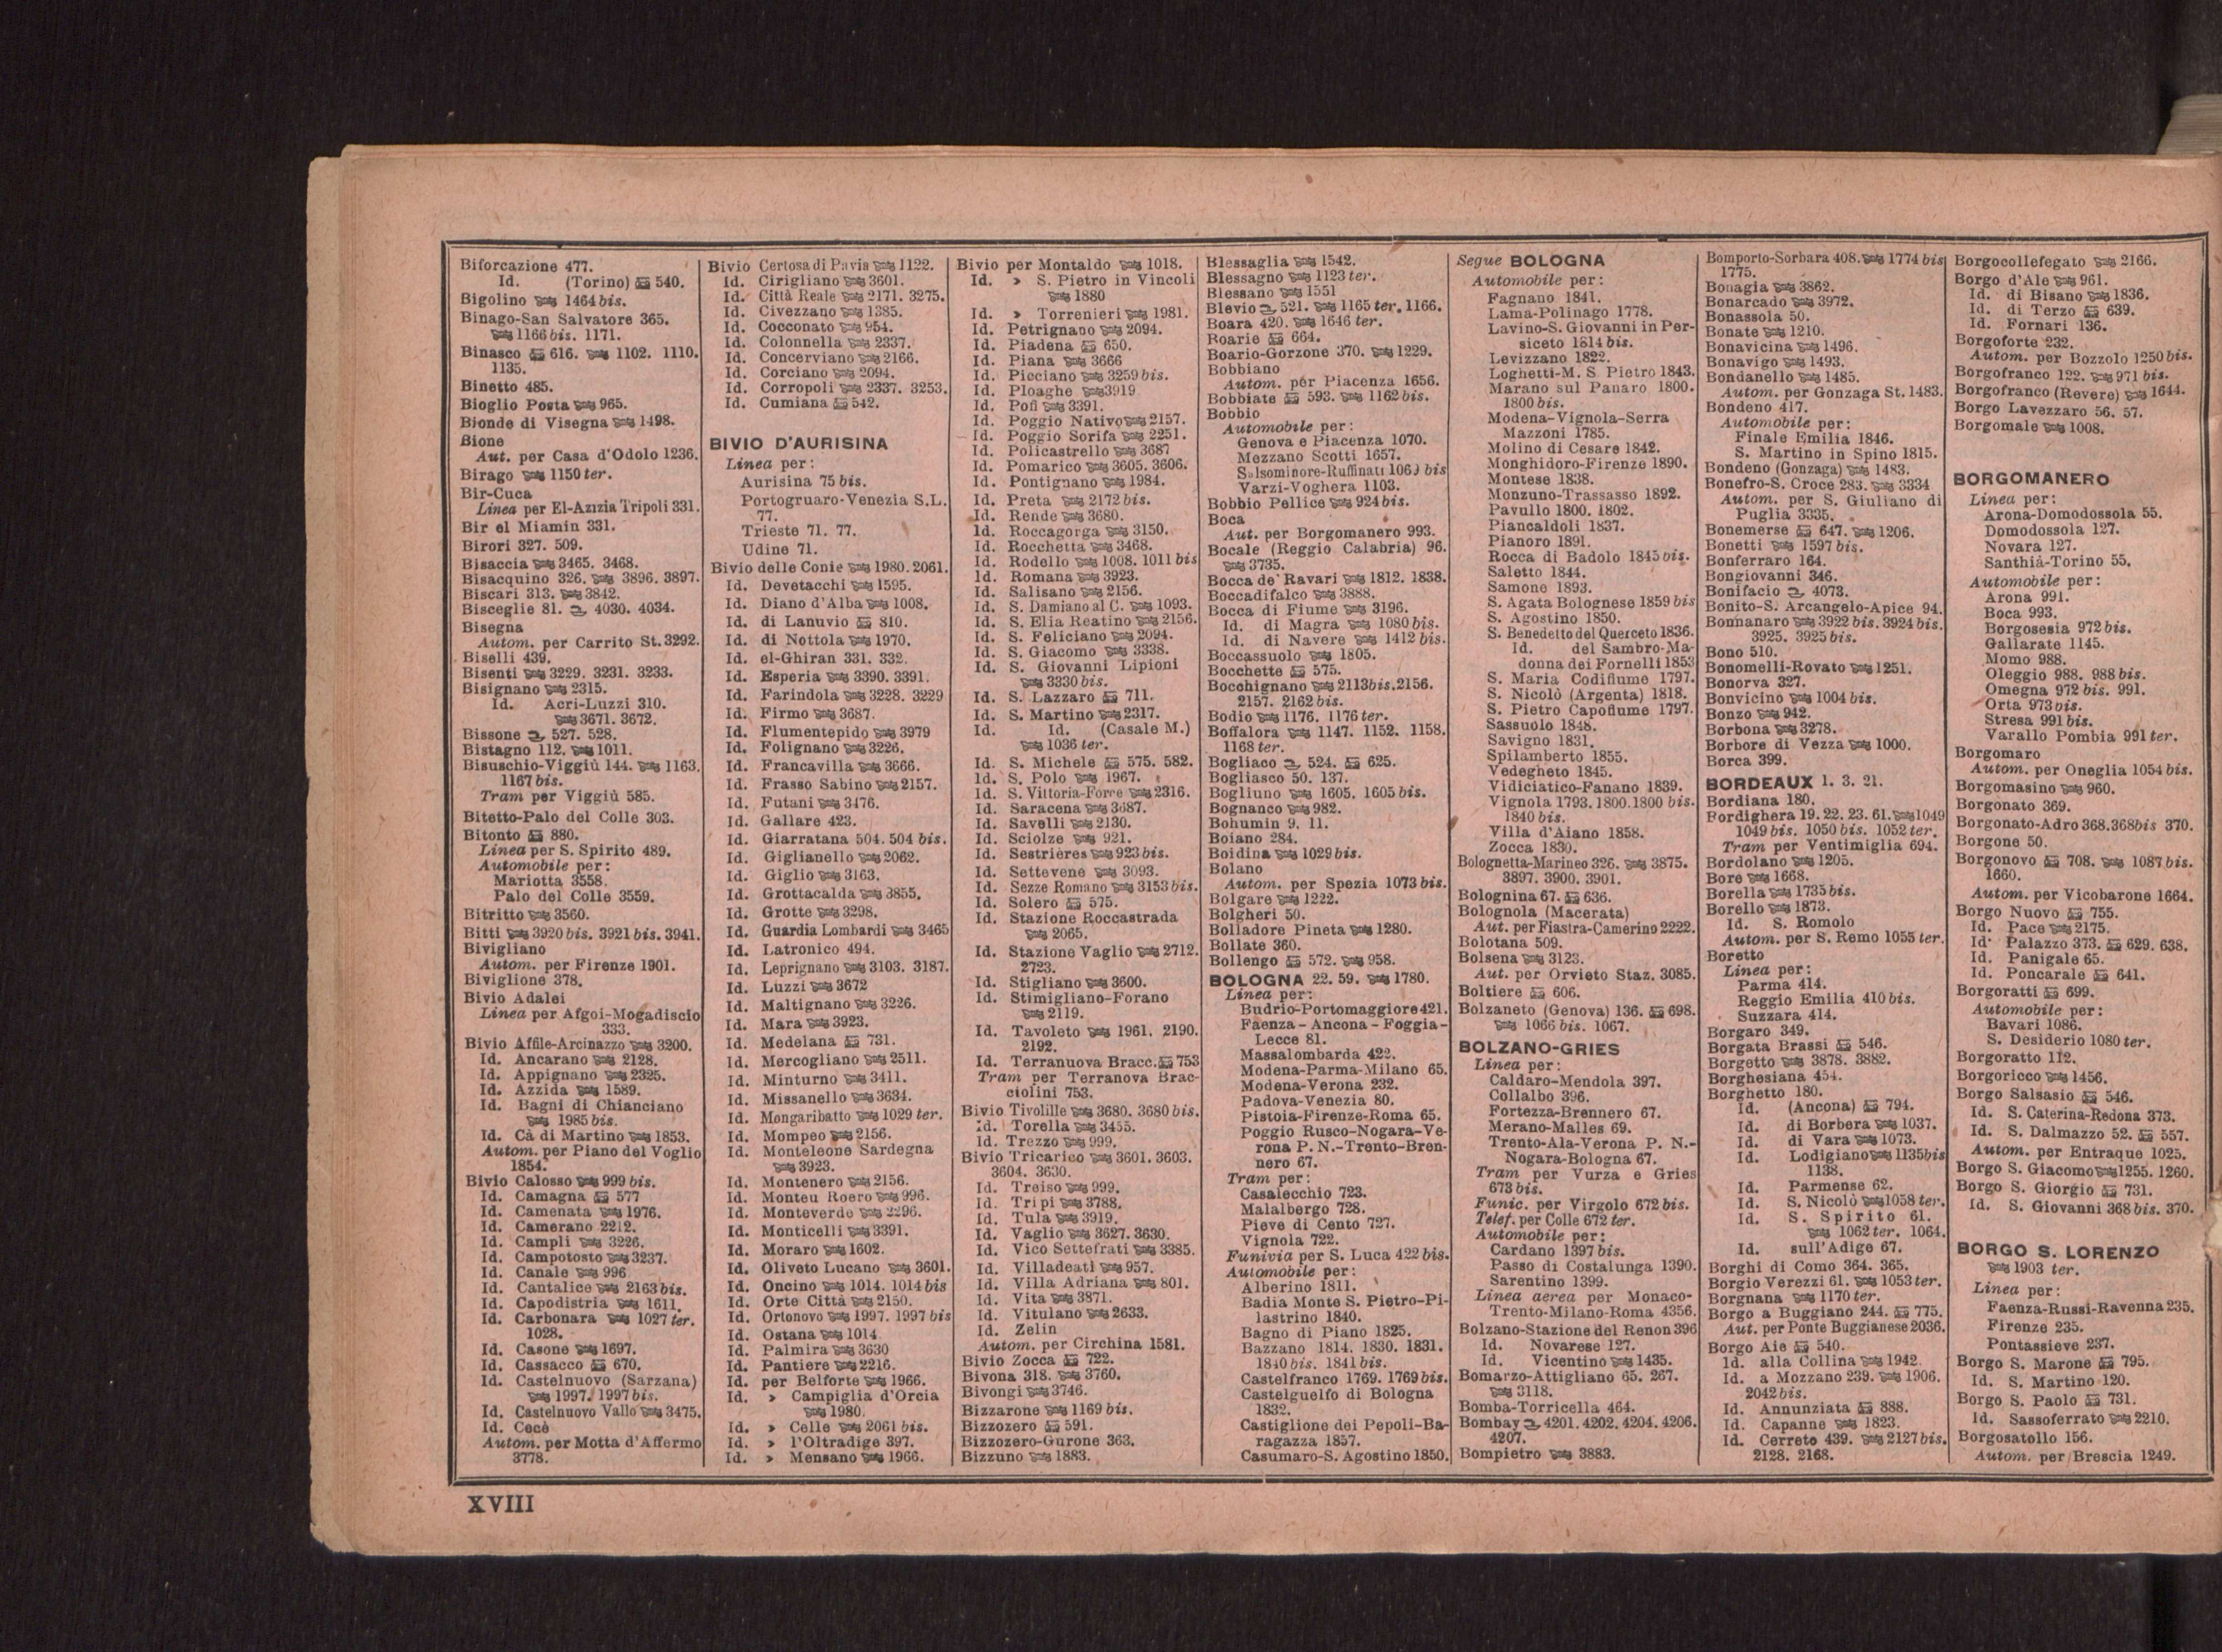 Biforcazione 477.
Id. (Torino) 540.
Bigolino 1464 bis.
Binago-San Salvatore 365.
1166 bis. 1171.
Binasco 616. 1102. 1110.
1135.
Binetto 485.
Bioglio Posta 965.
Bionde di Visegna 1498.
Bione
Aut. per Casa d'Odolo 1236.
Birago 1150 ter.
Bir-Cuca
Linea per El-Azizia Tripoli 331.
Bir el Miamin 331.
Birori 327. 509.
Bisaccia 3465. 3468.
Bisacquino 326. 3896. 3897.
Biscari 313. 3842.
Bisceglie 81. 4030. 4034.
Bisegna
Autom. per Carrito St. 3292.
Biselli 439.
Bisenti 3229. 3231. 3233.
Bisignano 2315.
Id. Acri-Luzzi 310.
3671. 3672.
Bissone 527. 528.
Bistagno 112. 1011.
Bisuschio-Viggiù 144. 1163.
1167 bis.
Tram per Viggiù 585.
Bitetto-Palo del Colle 303.
Bitonto 880.
Linea per S. Spirito 489.
Automobile per:
Mariotta 3558.
Palo del Colle 3559.
Bitritto 3560.
Bitti 3920 bis. 3921 bis. 3941.
Bivigliano
Autom. per Firenze 1901.
Biviglione 378.
Bivio Adalei
Linea per Afgoi-Mogadiscio
333.
Bivio Affile-Arcinazzo 3200.
Id. Ancarano 2128.
Id. Appignano 2325.
Id. Azzida 1589.
Id. Bagni di Chianciano
1985 bis.
Id. Cà di Martino 1853.
Autom. per Piano del Voglio
1854.
Bivio Calosso 999 bis.
Id. Camagna 577
Id. Camenata 1976.
Id. Camerano 2212.
Id. Campli 3226.
Id. Campotosto 3237.
Id. Canale 996
Id. Cantalice 2163 bis.
Id. Capodistria 1611.
Id. Carbonara 1027 ter.
1028.
Id. Casone 1697.
Id. Cassacco 670.
Id. Castelnuovo (Sarzana)
1997. 1997 bis.
Id. Castelnuovo Vallo 3475.
Id. Cecè
Autom. per Motta d'Affermo
3778.
Bivio Certosa di Pavia 1122.
Id. Cirigliano 3601.
Id. Città Reale 2171. 3275.
Id. Civezzano 1385.
Id. Cocconato 954.
Id. Colonnella 2337.
Id. Concerviano 2166.
Id. Corciano 2094.
Id. Corropoli 2337. 3253.
Id. Cumiana 542.
BIVIO D'AURISINA
Linea per:
Aurisina 75 bis.
Portogruaro-Venezia S.L.
77.
Trieste 71. 77.
Udine 71.
Bivio delle Conie 1980. 2061.
Id. Devetacchi 1595.
Id. Diano d'Alba 1008.
Id. di Lanuvio 810.
Id. di Nottola 1970.
Id. el-Ghiran 331. 332.
Id. Esperia 3390. 3391.
Id. Farindola 3228. 3229
Id. Firmo 3687.
Id. Flumentepido 3979
Id. Folignano 3226.
Id. Francavilla 3666.
Id. Frasso Sabino 2157.
Id. Futani 3476.
Id. Gallare 423.
Id. Giarratana 504. 504 bis.
Id. Giglianello 2062.
Id. Giglio 3163.
Id. Grottacalda 3855.
Id. Grotte 3298.
Id. Guardia Lombardi 3465
Id. Latronico 494.
Id. Leprignano 3103. 3187.
Id. Luzzi 3672
Id. Maltignano 3226.
Id. Mara 3923.
Id. Medelana 731.
Id. Mercogliano 2511.
Id. Minturno 3411.
Id. Missanello 3634.
Id. Mongaribatto 1029 ter.
Id. Mompeo 2156.
Id. Monteleone Sardegna
3923.
Id. Montenero 2156.
Id. Monteu Roero 996.
Id. Monteverde 2296.
Id. Monticelli 3391.
Id. Moraro 1602.
Id. Oliveto Lucano 3601.
Id. Oncino 1014. 1014 bis
Id. Orte Città 2150.
Id. Ortonovo 1997. 1997 bis
Id. Ostana 1014
Id. Palmira 3630
Id. Pantiere 2216.
Id. per Belforte 1966.
Id. » Campiglia d'Orcia
1980.
Id. » Celle 2061 bis.
Id. » l'Oltradige 397.
Id. » Mensano 1966.
Bivio per Montaldo 1018.
Id. » S. Pietro in Vincoli
1880
Id. » Torrenieri 1981.
Id. Petrignano 2094.
Id. Piadena 650.
Id. Piana 3666
Id. Picciano 3259 bis.
Id. Ploaghe 3919
Id. Pofi 3391.
Id. Poggio Nativo 2157.
Id. Poggio Sorifa 2251.
Id. Policastrello 3687
Id. Pomarico 3605. 3606.
Id. Pontignano 1984.
Id. Preta 2172 bis.
Id. Rende 3680.
Id. Roccagorga 3150.
Id. Rocchetta 3468.
Id. Rodello 1008. 1011 bis
Id. Romana 3923.
Id. Salisano 2156.
Id. S. Damiano al C. 1093.
Id. S. Elia Reatino 2156.
Id. S. Feliciano 2094.
Id. S. Giacomo 3338.
Id. S. Giovanni Lipioni
3330 bis.
Id. S. Lazzaro 711.
Id. S. Martino 2317.
Id. Id. (Casale M.)
1036 ter.
Id. S. Michele 575. 582.
Id. S. Polo 1967.
Id. S. Vittoria-Force 2316.
Id. Saracena 3687.
Id. Savelli 2130.
Id. Sciolze 921.
Id. Sestrières 923 bis.
Id. Settevene 3093.
Id. Sezze Romano 3153 bis.
Id. Solero 575.
Id. Stazione Roccastrada
2065.
Id. Stazione Vaglio 2712.
2723.
Id. Stigliano 3600.
Id. Stimigliano-Forano
2119.
Id. Tavoleto 1961. 2190.
2192.
Id. Terranuova Bracc. 753
Tram per Terranova Brac-
ciolini 753.
Bivio Tivolille 3680. 3680 bis.
Id. Torella 3455.
Id. Trezzo 999.
Bivio Tricarico 3601. 3603.
3604. 3630.
Id. Treiso 999.
Id. Tripi 3788.
Id. Tula 3919.
Id. Vaglio 3627. 3630.
Id. Vico Settefrati 3385.
Id. Villadeati 957.
Id. Villa Adriana 801.
Id. Vita 3871.
Id. Vitulano 2633.
Id. Zelin
Autom. per Circhina 1581.
Bivio Zocca 722.
Bivona 318. 3760.
Bivongi 3746.
Bizzarone 1169 bis.
Bizzozero 591.
Bizzozero-Gurone 363.
Bizzuno 1883.
Blessaglia 1542.
Blessagno 1123 ter.
Blessano 1551
Blevio 521. 1165 ter. 1166.
Boara 420. 1646 ter.
Roarie 664.
Boario-Gorzone 370. 1229.
Bobbiano
Autom. per Piacenza 1656.
Bobbiate 593. 1162 bis.
Bobbio
Automobile per:
Genova e Piacenza 1070.
Mezzano Scotti 1657.
Salsominore-Ruffinati 1069 bis
Varzi-Voghera 1103.
Bobbio Pellice 924 bis.
Boca
Aut. per Borgomanero 993.
Bocale (Reggio Calabria) 96.
3735.
Bocca de' Ravari 1812. 1838.
Boccadifalco 3888.
Bocca di Fiume 3196.
Id. di Magra 1080 bis.
Id. di Navere 1412 bis.
Boccassuolo 1805.
Bocchette 575.
Bocchignano 2113 bis. 2156.
2157. 2162 bis.
Bodio 1176. 1176 ter.
Boffalora 1147. 1152. 1158.
1168 ter.
Bogliaco 524. 625.
Bogliasco 50. 137.
Bogliuno 1605. 1605 bis.
Bognanco 982.
Bohumin 9. 11.
Boiano 284.
Boidina 1029 bis.
Bolano
Autom. per Spezia 1073 bis.
Bolgare 1222.
Bolgheri 50.
Bolladore Pineta 1280.
Bollate 360.
Bollengo 572. 958.
BOLOGNA 22. 59. 1780.
Linea per:
Budrio-Portomaggiore 421.
Faenza-Ancona-Foggia-
Lecce 81.
Massalombarda 422.
Modena-Parma-Milano 65.
Modena-Verona 232.
Padova-Venezia 80.
Pistoia-Firenze-Roma 65.
Poggio Rusco-Nogara-Ve-
rona P. N.-Trento-Bren-
nero 67.
Tram per:
Casalecchio 723.
Malalbergo 728.
Pieve di Cento 727.
Vignola 722.
Funivia per S. Luca 422 bis.
Automobile per:
Alberino 1811.
Badia Monte S. Pietro-Pi-
lastrino 1840.
Bagno di Piano 1825.
Bazzano 1814. 1830. 1831.
1840 bis. 1841 bis.
Castelfranco 1769. 1769 bis.
Castelguelfo di Bologna
1832.
Castiglione dei Pepoli-Ba-
ragazza 1857.
Casumaro-S. Agostino 1850.
Segue BOLOGNA
Automobile per:
Fagnano 1841.
Lama-Polinago 1778.
Lavino-S. Giovanni in Per-
siceto 1814 bis.
Levizzano 1822.
Loghetti-M. S. Pietro 1843.
Marano sul Panaro 1800.
1800 bis.
Modena-Vignola-Serra
Mazzoni 1785.
Molino di Cesare 1842.
Monghidoro-Firenze 1890.
Montese 1838.
Monzuno-Trassasso 1892.
Pavullo 1800. 1802.
Piancaldoli 1837.
Pianoro 1891.
Rocca di Badolo 1845 bis.
Saletto 1844.
Samone 1893.
S. Agata Bolognese 1859 bis
S. Agostino 1850.
S. Benedetto del Querceto 1836.
Id. del Sambro-Ma-
donna dei Fornelli 1853
S. Maria Codifiume 1797.
S. Nicolò (Argenta) 1818.
S. Pietro Capofiume 1797.
Sassuolo 1848.
Savigno 1831.
Spilamberto 1855.
Vedegheto 1845.
Vidiciatico-Fanano 1839.
Vignola 1793. 1800. 1800 bis.
1840 bis.
Villa d'Aiano 1858.
Zocca 1830.
Bolognetta-Marineo 326. 3875.
3897. 3900. 3901.
Bolognina 67. 636.
Bolognola (Macerata)
Aut. per Fiastra-Camerino 2222.
Bolotana 509.
Bolsena 3123.
Aut. per Orvieto Staz. 3085.
Boltiere 606.
Bolzaneto (Genova) 136. 698.
1066 bis. 1067.
BOLZANO-GRIES
Linea per:
Caldaro-Mendola 397.
Collalbo 396.
Fortezza-Brennero 67.
Merano-Malles 69.
Trento-Ala-Verona P. N.-
Nogara-Bologna 67.
Tram per Vurza e Gries
673 bis.
Funic. per Virgolo 672 bis.
Telef. per Colle 672 ter.
Automobile per:
Cardano 1397 bis.
Passo di Costalunga 1390.
Sarentino 1399.
Linea aerea per Monaco-
Trento-Milano-Roma 4356.
Bolzano-Stazione del Renon 396
Id. Novarese 127.
Id. Vicentino 1435.
Bomarzo-Attigliano 65. 267.
3118.
Bomba-Torricella 464.
Bombay 4201. 4202. 4204. 4206.
4207.
Bompietro 3883.
Bomporto-Sorbara 408. 1774 bis
1775.
Bonagia 3862.
Bonarcado 3972.
Bonassola 50.
Bonate 1210.
Bonavicina 1496.
Bonavigo 1493.
Bondanello 1485.
Autom. per Gonzaga St. 1483.
Bondeno 417.
Automobile per:
Finale Emilia 1846.
S. Martino in Spino 1815.
Bondeno (Gonzaga) 1483.
Bonefro-S. Croce 283. 3334
Autom. per S. Giuliano di
Puglia 3335.
Bonemerse 647. 1206.
Bonetti 1597 bis.
Bonferraro 164.
Bongiovanni 346.
Bonifacio 4073.
Bonito-S. Arcangelo-Apice 94.
Bonnanaro 3922 bis. 3924 bis.
3925. 3925 bis.
Bono 510.
Bonomelli-Rovato 1251.
Bonorva 327.
Bonvicino 1004 bis.
Bonzo 942.
Borbona 3278.
Borbore di Vezza 1000.
Borca 399.
BORDEAUX 1. 3. 21.
Bordiana 180.
Bordighera 19. 22. 23. 61. 1049
1049 bis. 1050 bis. 1052 ter.
Tram per Ventimiglia 694.
Bordolano 1205.
Bore 1668.
Borella 1735 bis.
Borello 1873.
Id. S. Romolo
Autom. per S. Remo 1055 ter.
Boretto
Linea per:
Parma 414.
Reggio Emilia 410 bis.
Suzzara 414.
Borgaro 349.
Borgata Brassi 546.
Borgetto 3878. 3882.
Borghesiana 454.
Borghetto 180.
Id. (Ancona) 794.
Id. di Borbera 1037.
Id. di Vara 1073.
Id. Lodigiano 1135 bis
1138.
Id. Parmense 62.
Id. S. Nicolò 1058 ter.
Id. S. Spirito 61.
1062 ter. 1064.
Id. sull'Adige 67.
Borghi di Como 364. 365.
Borgio Verezzi 61. 1053 ter.
Borgnana 1170 ter.
Borgo a Buggiano 244. 775.
Aut. per Ponte Buggianese 2036.
Borgo Aie 540.
Id. alla Collina 1942.
Id. a Mozzano 239. 1906.
2042 bis.
Id. Annunziata 888.
Id. Capanne 1823.
Id. Cerreto 439. 2127 bis.
2128. 2168.
Borgocollefegato 2166.
Borgo d'Ale 961.
Id. di Bisano 1836.
Id. di Terzo 639.
Id. Fornari 136.
Borgoforte 232.
Autom. per Bozzolo 1250 bis.
Borgofranco 122. 971 bis.
Borgofranco (Revere) 1644.
Borgo Lavezzaro 56. 57.
Borgomale 1008.
BORGOMANERO
Linea per:
Arona-Domodossola 55.
Domodossola 127.
Novara 127.
Santhià-Torino 55.
Automobile per:
Arona 991.
Boca 993.
Borgosesia 972 bis.
Gallarate 1145.
Momo 988.
Oleggio 988. 988 bis.
Omegna 972 bis. 991.
Orta 973 bis.
Stresa 991 bis.
Varallo Pombia 991 ter.
Borgomaro
Autom. per Oneglia 1054 bis.
Borgomasino 960.
Borgonato 369.
Borgonato-Adro 368. 368 bis 370.
Borgone 50.
Borgonovo 708. 1087 bis.
1660.
Autom. per Vicobarone 1664.
Borgo Nuovo 755.
Id. Pace 2175.
Id. Palazzo 373. 629. 638.
Id. Panigale 65.
Id. Poncarale 641.
Borgoratti 699.
Automobile per:
Bavari 1086.
S. Desiderio 1080 ter.
Borgoratto 112.
Borgoricco 1456.
Borgo Salsasio 546.
Id. S. Caterina-Redona 373.
Id. S. Dalmazzo 52. 557.
Autom. per Entraque 1025.
Borgo S. Giacomo 1255. 1260.
Borgo S. Giorgio 731.
Id. S. Giovanni 368 bis. 370.
BORGO S. LORENZO
1903 ter.
Linea per:
Faenza-Russi-Ravenna 235.
Firenze 235.
Pontassieve 237.
Borgo S. Marone 795.
Id. S. Martino 120.
Borgo S. Paolo 731.
Id. Sassoferrato 2210.
Borgosatollo 156.
Autom. per Brescia 1249.
XVIII